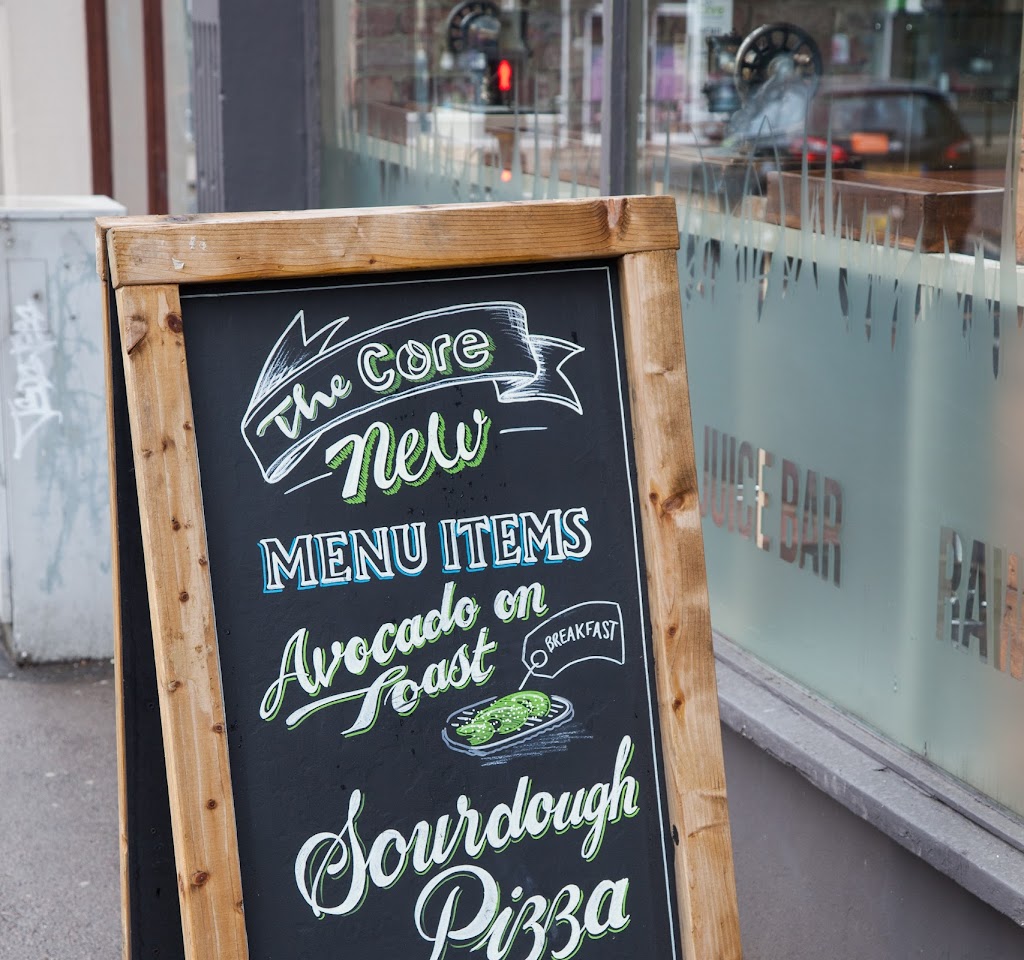 The Core
New
MENU ITEMS
Avocado on
Toast
BREAKFAST
Sourdough
Pizza
JUICE BAR
RAW